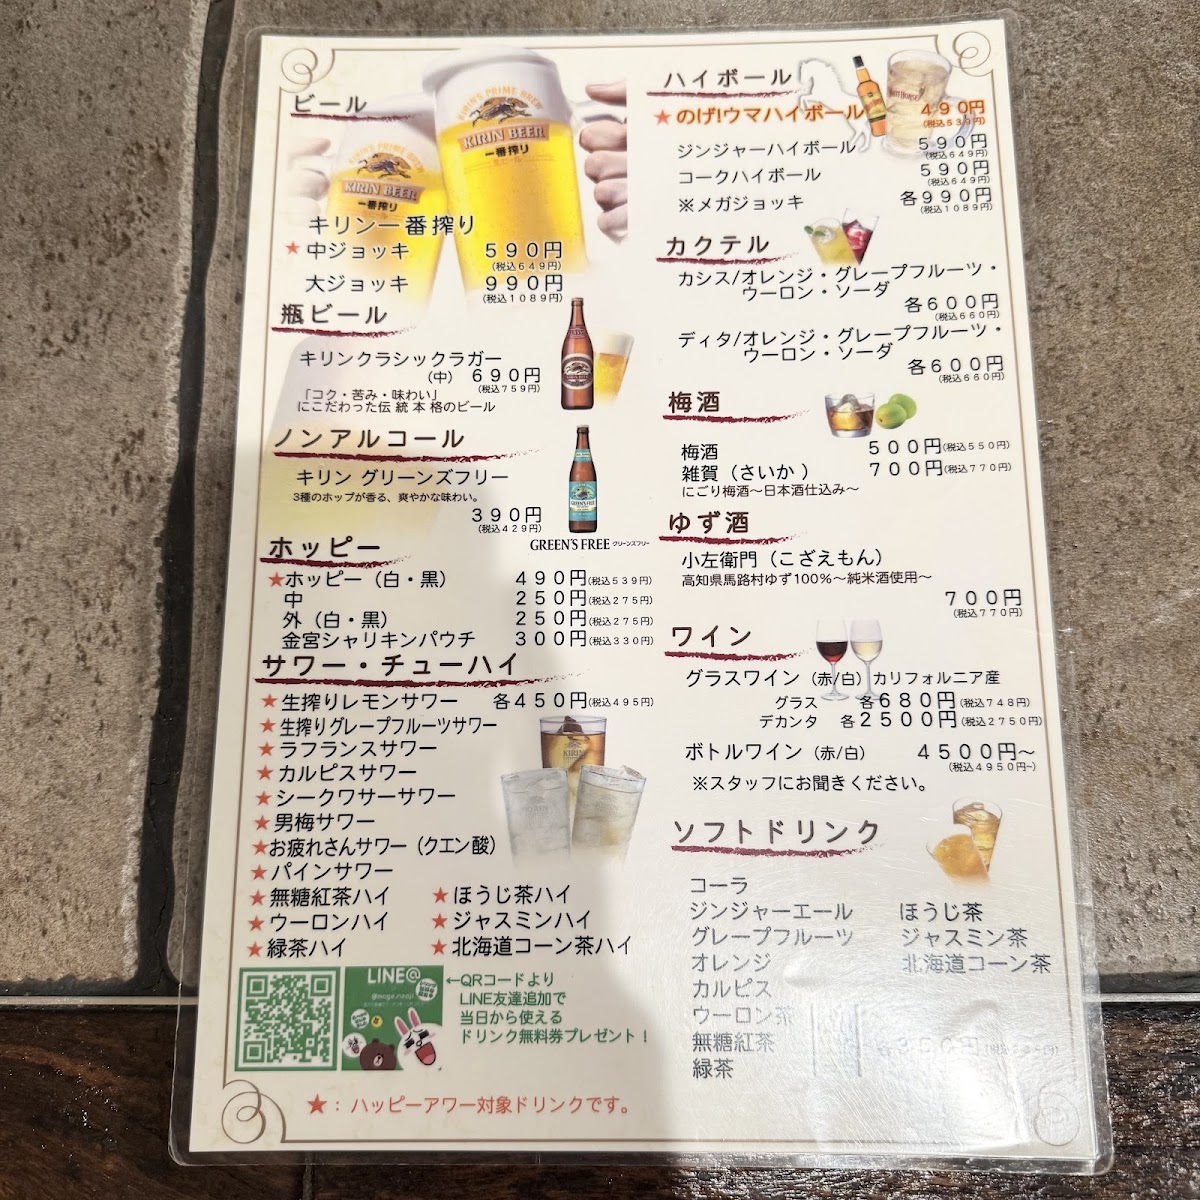 ビール
KIRIN'S PRIME BREW
KIRIN BEER
一番搾り
KIRIN BEER
一番搾り
キリン一番搾り
★中ジョッキ 590円
(税込649円)
大ジョッキ 990円
(税込1089円)
瓶ビール
キリンクラシックラガー
(中) 690円
(税込759円)
「コク・苦み・味わい」
にこだわった伝統本格のビール
ノンアルコール
キリン グリーンズフリー
3種のホップが香る、爽やかな味わい。
390円
(税込429円)
GREEN'S FREE グリーンズフリー
ホッピー
★ホッピー（白・黒） 490円(税込539円)
中 250円(税込275円)
外（白・黒） 250円(税込275円)
金宮シャリキンパウチ 300円(税込330円)
サワー・チューハイ
★生搾りレモンサワー 各450円(税込495円)
★生搾りグレープフルーツサワー
★ラフランスサワー
★カルピスサワー
★シークワサーサワー
★男梅サワー
★お疲れさんサワー（クエン酸）
★パインサワー
★無糖紅茶ハイ ★ほうじ茶ハイ
★ウーロンハイ ★ジャスミンハイ
★緑茶ハイ ★北海道コーン茶ハイ
LINE@
←QRコードより
LINE友達追加で
当日から使える
ドリンク無料券プレゼント！
★：ハッピーアワー対象ドリンクです。
ハイボール
★のげ!ウマハイボール 490円
(税込539円)
ジンジャーハイボール 590円
(税込649円)
コークハイボール 590円
(税込649円)
※メガジョッキ 各990円
(税込1089円)
カクテル
カシス/オレンジ・グレープフルーツ・
ウーロン・ソーダ
各600円
(税込660円)
ディタ/オレンジ・グレープフルーツ・
ウーロン・ソーダ
各600円
(税込660円)
梅酒
梅酒 500円(税込550円)
雑賀（さいか） 700円(税込770円)
にごり梅酒～日本酒仕込み～
ゆず酒
小左衛門（こざえもん）
高知県馬路村ゆず100%～純米酒使用～
700円
(税込770円)
ワイン
グラスワイン（赤/白）カリフォルニア産
グラス 各680円(税込748円)
デカンタ 各2500円(税込2750円)
ボトルワイン（赤/白） 4500円～
(税込4950円~)
※スタッフにお聞きください。
ソフトドリンク
コーラ
ジンジャーエール ほうじ茶
グレープフルーツ ジャスミン茶
オレンジ 北海道コーン茶
カルピス
ウーロン茶
無糖紅茶
緑茶